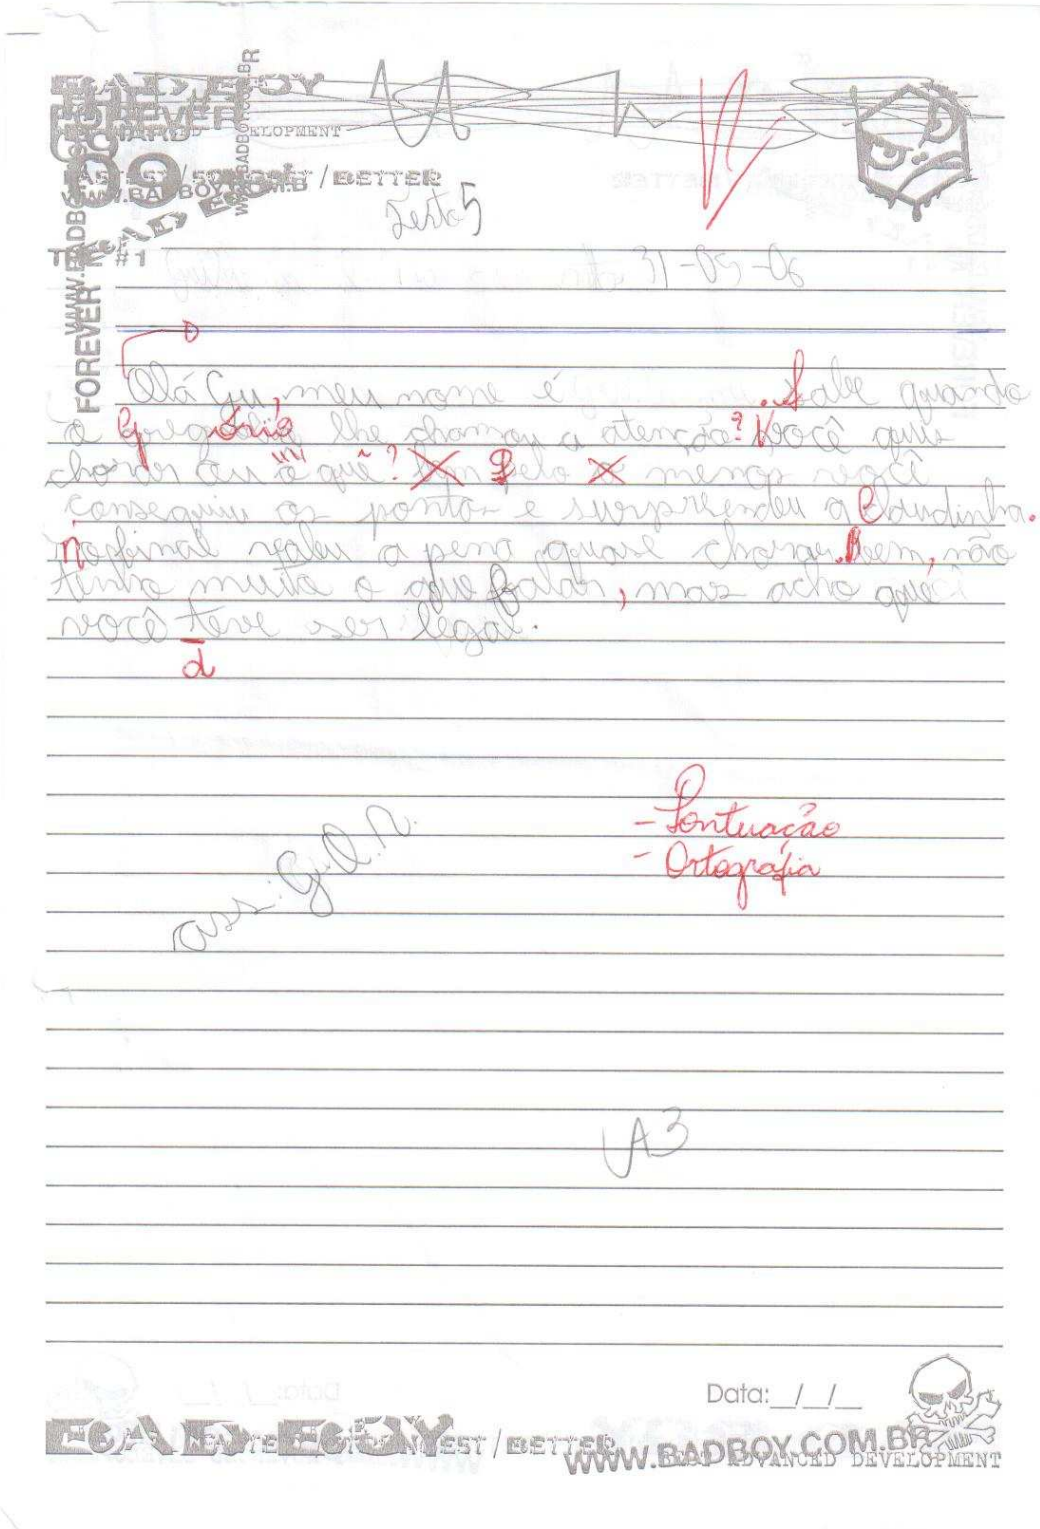 BAD BOY
FOREVER
ELOPMENT
/ BETTER
WWW.BADBOY.COM.B
Texto 5
THE #1
FOREVER
Olá Gu, meu nome é . Sabe quando
o gregório lhe chamou a atenção? Você quis
chorar ou o quê? pelo menos você
conseguiu os pontos e surpreendeu a Claudinha.
no final valeu a pena quase chorar. Bem, não
tenho muito o que falar, mas acho que
você teve ser legal.
d
- Pontuação
- Ortografia
ass: G.O.N.
A3
Data:__/__/__
BAD BOY
EST / BETTER
WWW.BADBOY.COM.BR
ADVANCED DEVELOPMENT